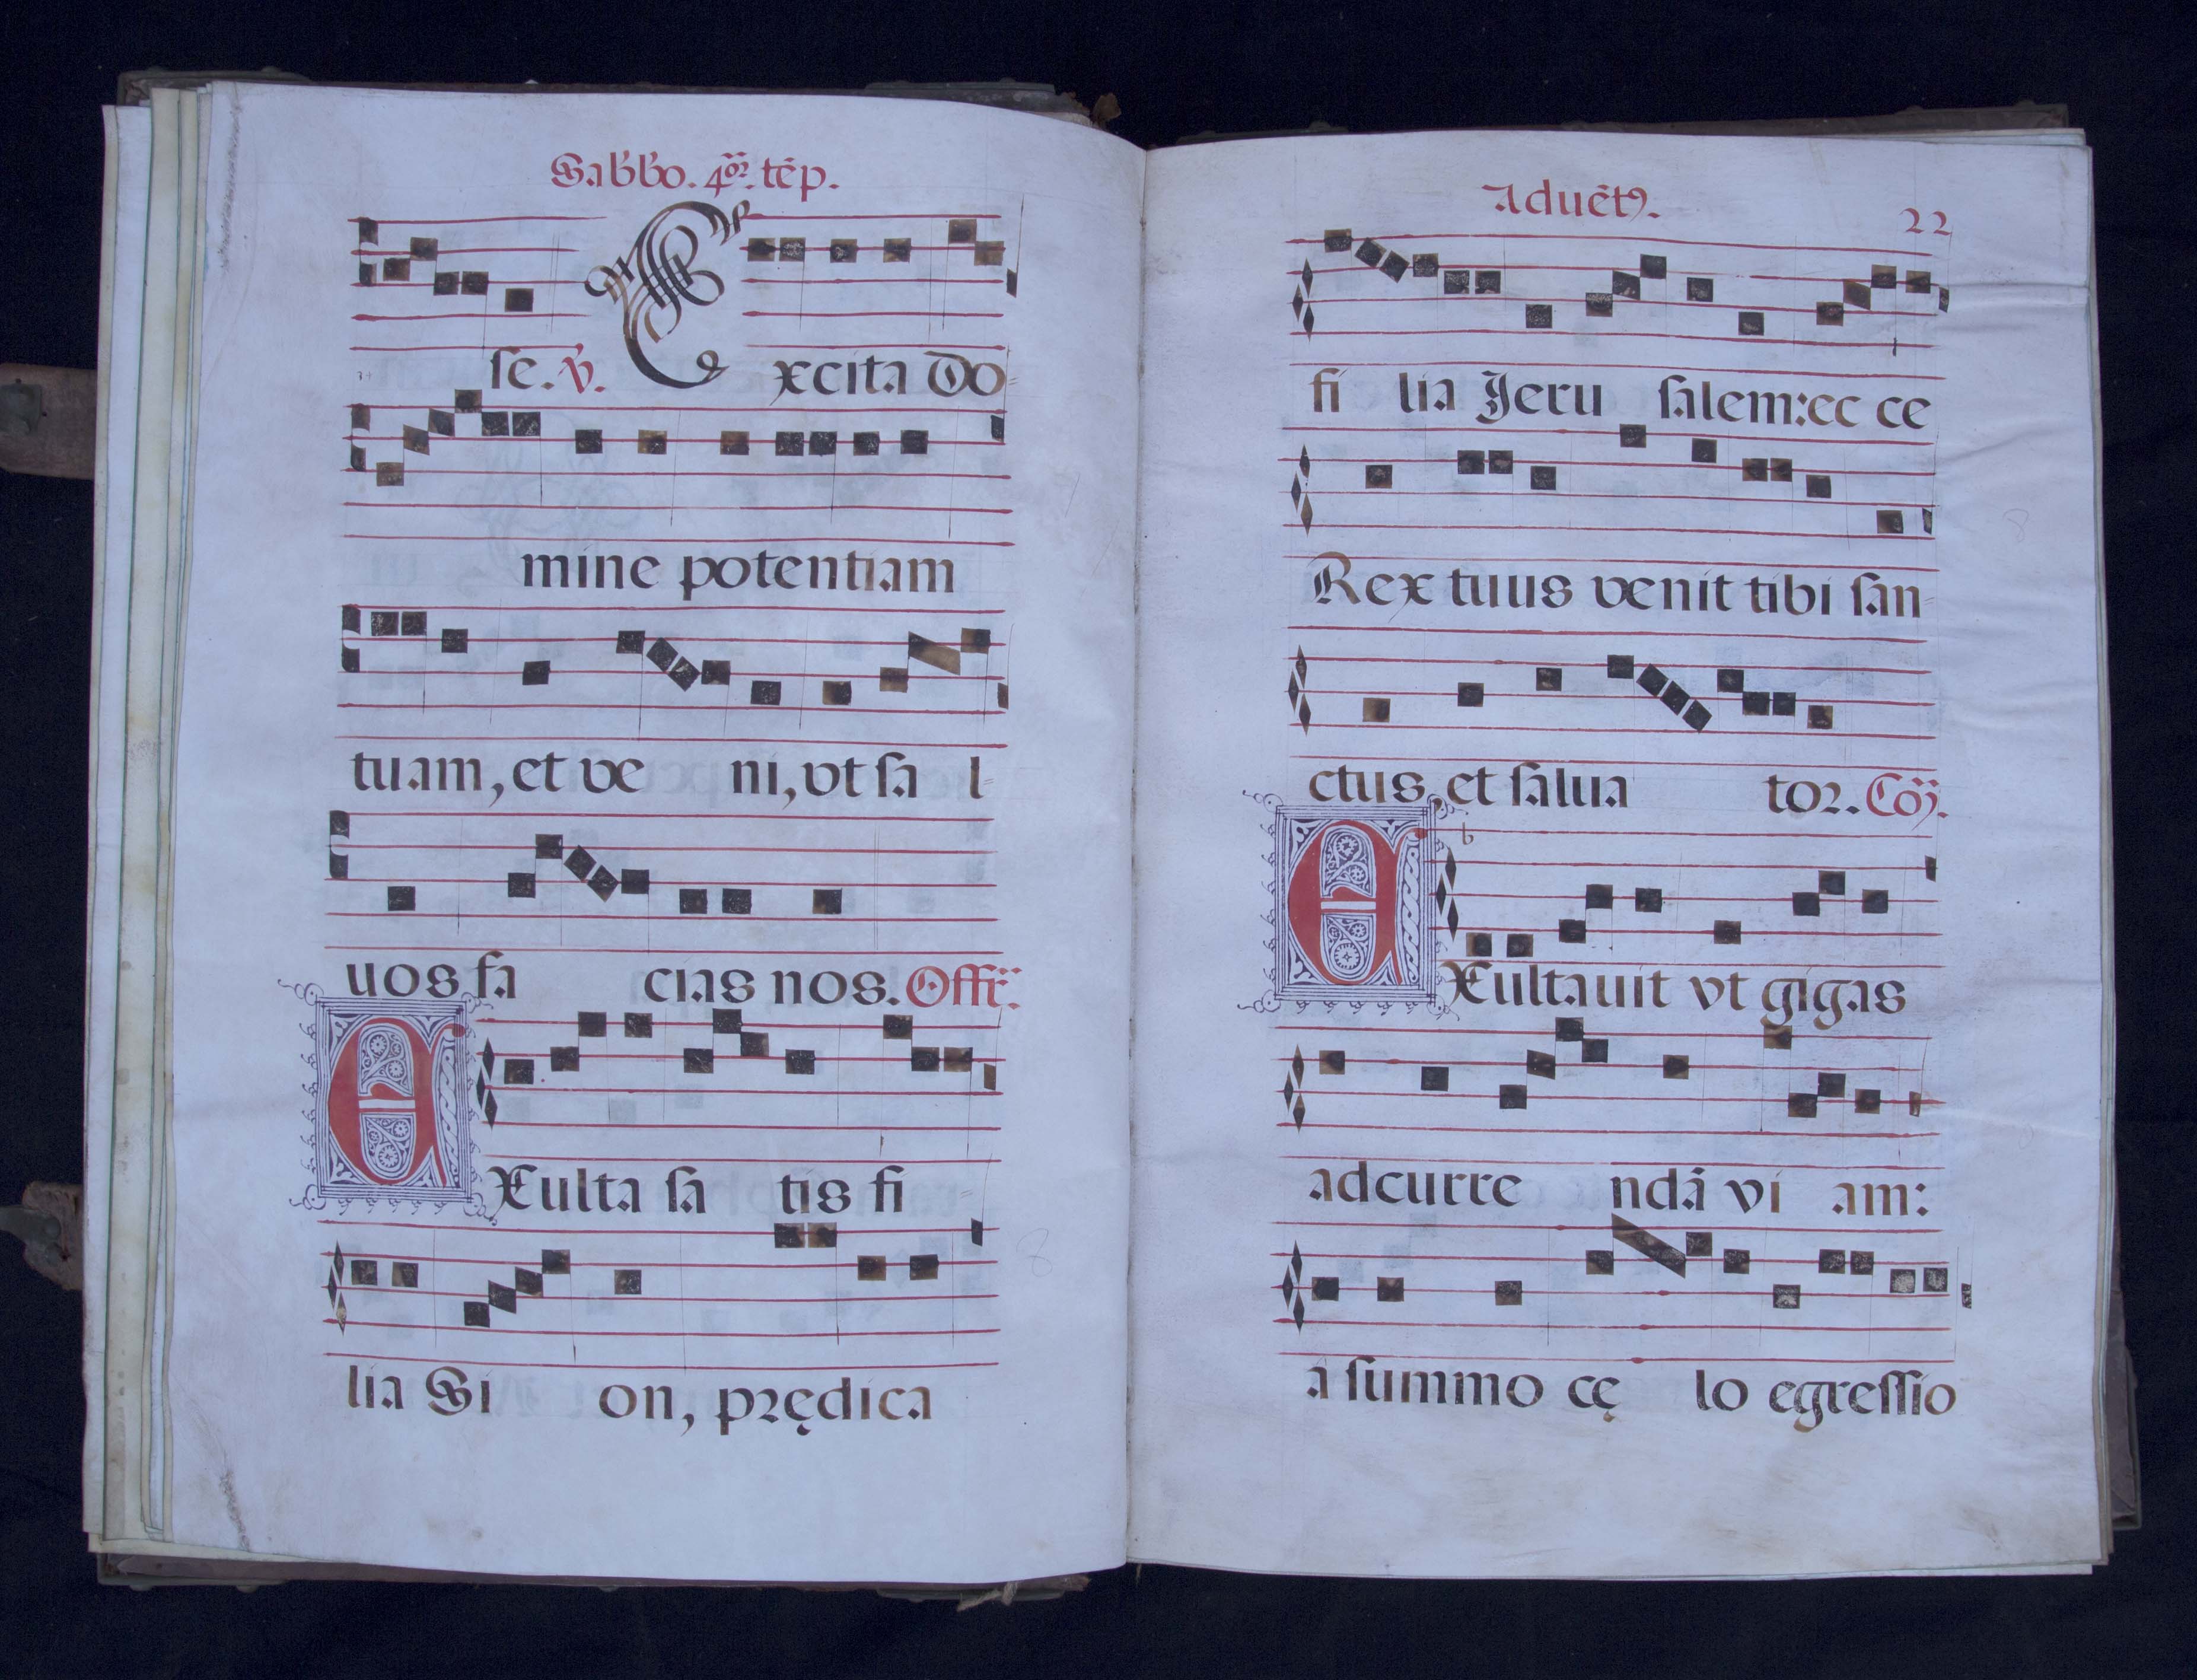 Sabbo. 4or. tēp.
se. ℣. Excita Do-
mine potentiam
tuam, et ve ni, vt sa l-
uos fa cias nos. Offr.
EXulta sa tis fi -
lia Si on, prędica
Aduēt9.
22
fi lia Jeru salem: ec ce
Rex tuus venit tibi san-
ctus, et salua tor. Cōi.
b
EXultauit vt gigas
ad curre ndā vi am:
a summo cę lo egressio